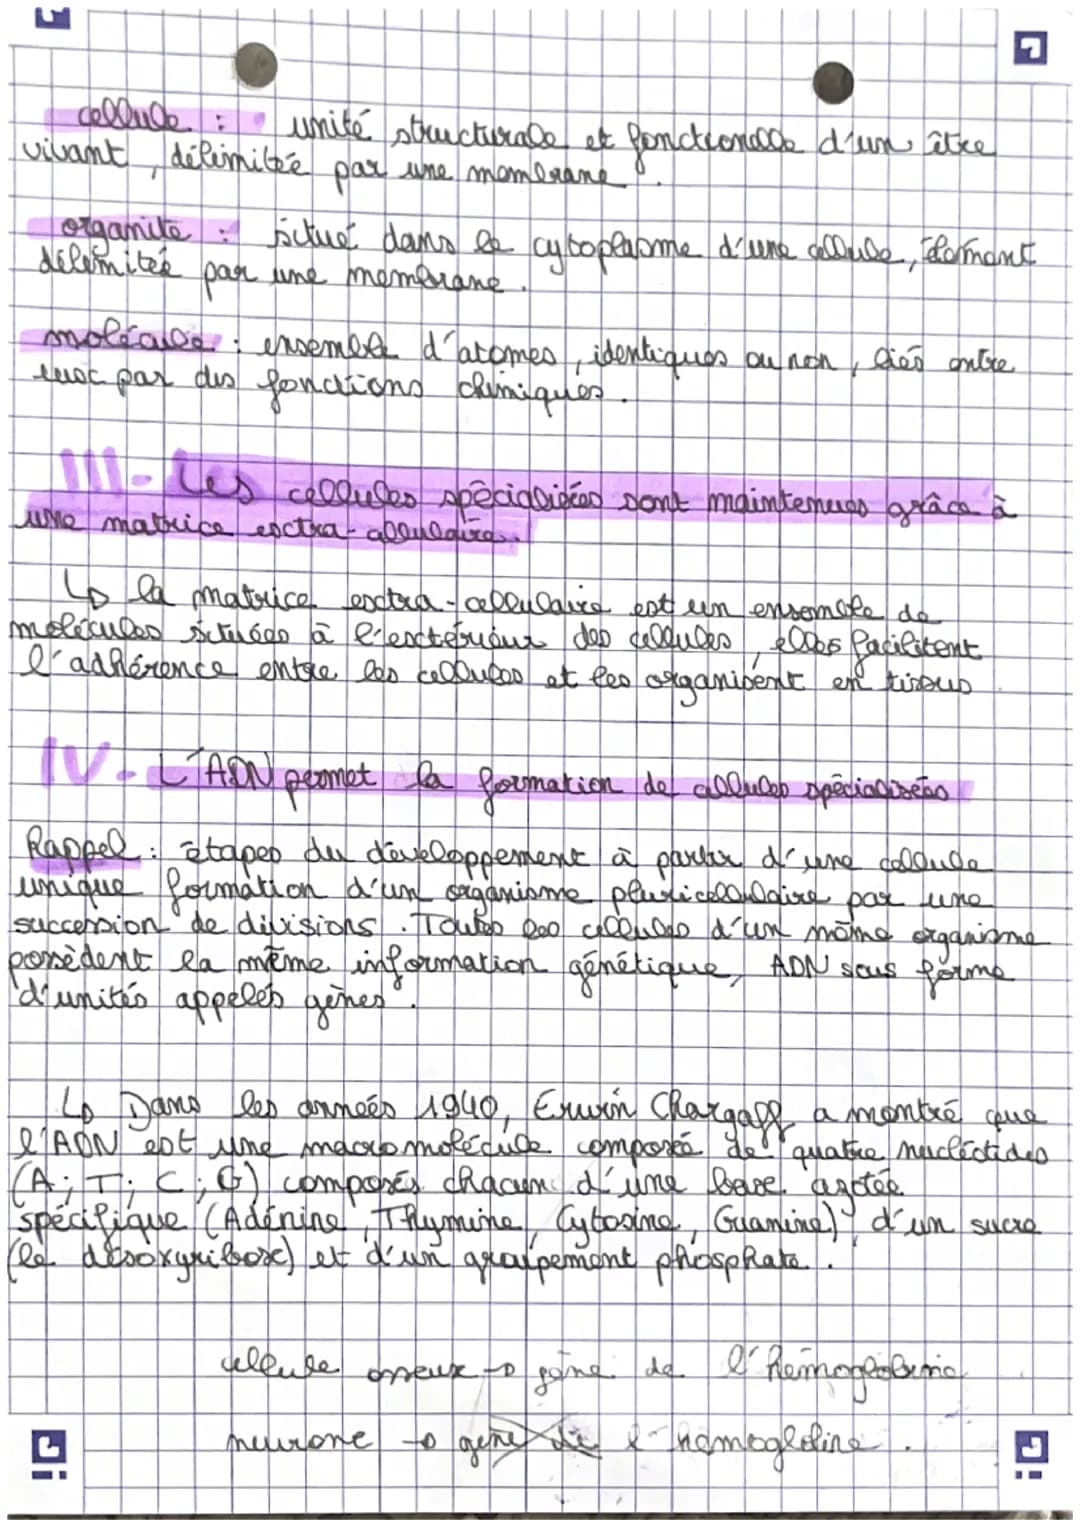 cellule : unité structurale et fonctionelle d'un être
vivant, délimitée par une membrane.
organite : situé dans le cytoplasme d'une cellule, élément
délimitée par une membrane.
molécule : ensemble d'atomes, identiques ou non, liés entre
eux par des fonctions chimiques.
III- Les cellules spécialisées sont maintenues grâce à
une matrice extra-cellulaire.
↳ la matrice extra-cellulaire est un ensemble de
molécules situées à l'extérieur des cellules, elles facilitent
l'adhérence entre les cellules et les organisent en tissus
IV- L'ADN permet la formation de cellules spécialisées
Rappel : étapes du développement à partir d'une cellule
unique formation d'un organisme pluricellulaire par une
succession de divisions. Toutes les cellules d'un même organisme
possèdent la même information génétique, ADN sous forme
d'unités appelés gènes.
↳ Dans les années 1940, Erwin Chargaff a montré que
l'ADN est une macromolécule composé de quatre nucléotides
(A; T; C; G) composés chacun d'une base azotée
spécifique (Adénine, Thymine, Cytosine, Guanine) d'un sucre
(le désoxyribose) et d'un groupement phosphate.
cellule osseux → gène de l'hémoglobine
neurone → gène de l'hémoglobine.